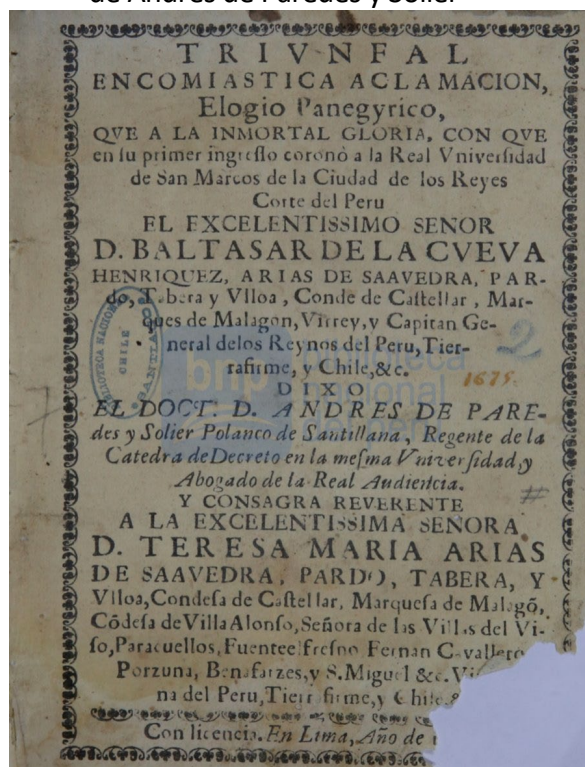 de Andrés de Paredes y Solier
TRIVNFAL
ENCOMIASTICA ACLAMACION,
Elogio Panegyrico,
QVE A LA INMORTAL GLORIA, CON QVE
en su primer ingresso coronò a la Real Vniversidad
de San Marcos de la Ciudad de los Reyes
Corte del Peru
EL EXCELENTISSIMO SENOR
D. BALTASAR DE LA CVEVA
HENRIQUEZ, ARIAS DE SAAVEDRA, PAR-
do, Tabera y Vlloa, Conde de Castellar, Mar-
ques de Malagon, Virrey, y Capitan Ge-
neral delos Reynos del Peru, Tier-
rafirme, y Chile, &c.
1675.
DIXO
EL DOCT. D. ANDRES DE PARE-
des y Solier Polanco de Santillana, Regente de la
Catedra de Decreto en la mesma Vniversidad, y
Abogado de la Real Audiencia.
Y CONSAGRA REVERENTE
A LA EXCELENTISSIMA SENORA
D. TERESA MARIA ARIAS
DE SAAVEDRA, PARDO, TABERA, Y
Vlloa, Condesa de Castellar, Marquesa de Malagõ,
Cõdesa de Villa Alonso, Señora de las Villas del Vi-
so, Paracuellos, Fuente el fresno Fernan Cavallero
Porzuna, Benafarzes, y S. Miguel &c. Vi
na del Peru, Tierra firme, y Chile, &
Con licencia. En Lima, Año de
BIBLIOTECA NACIONAL
CHILE
SANTIAGO
bnp biblioteca
nacional
del perú
2
7
#